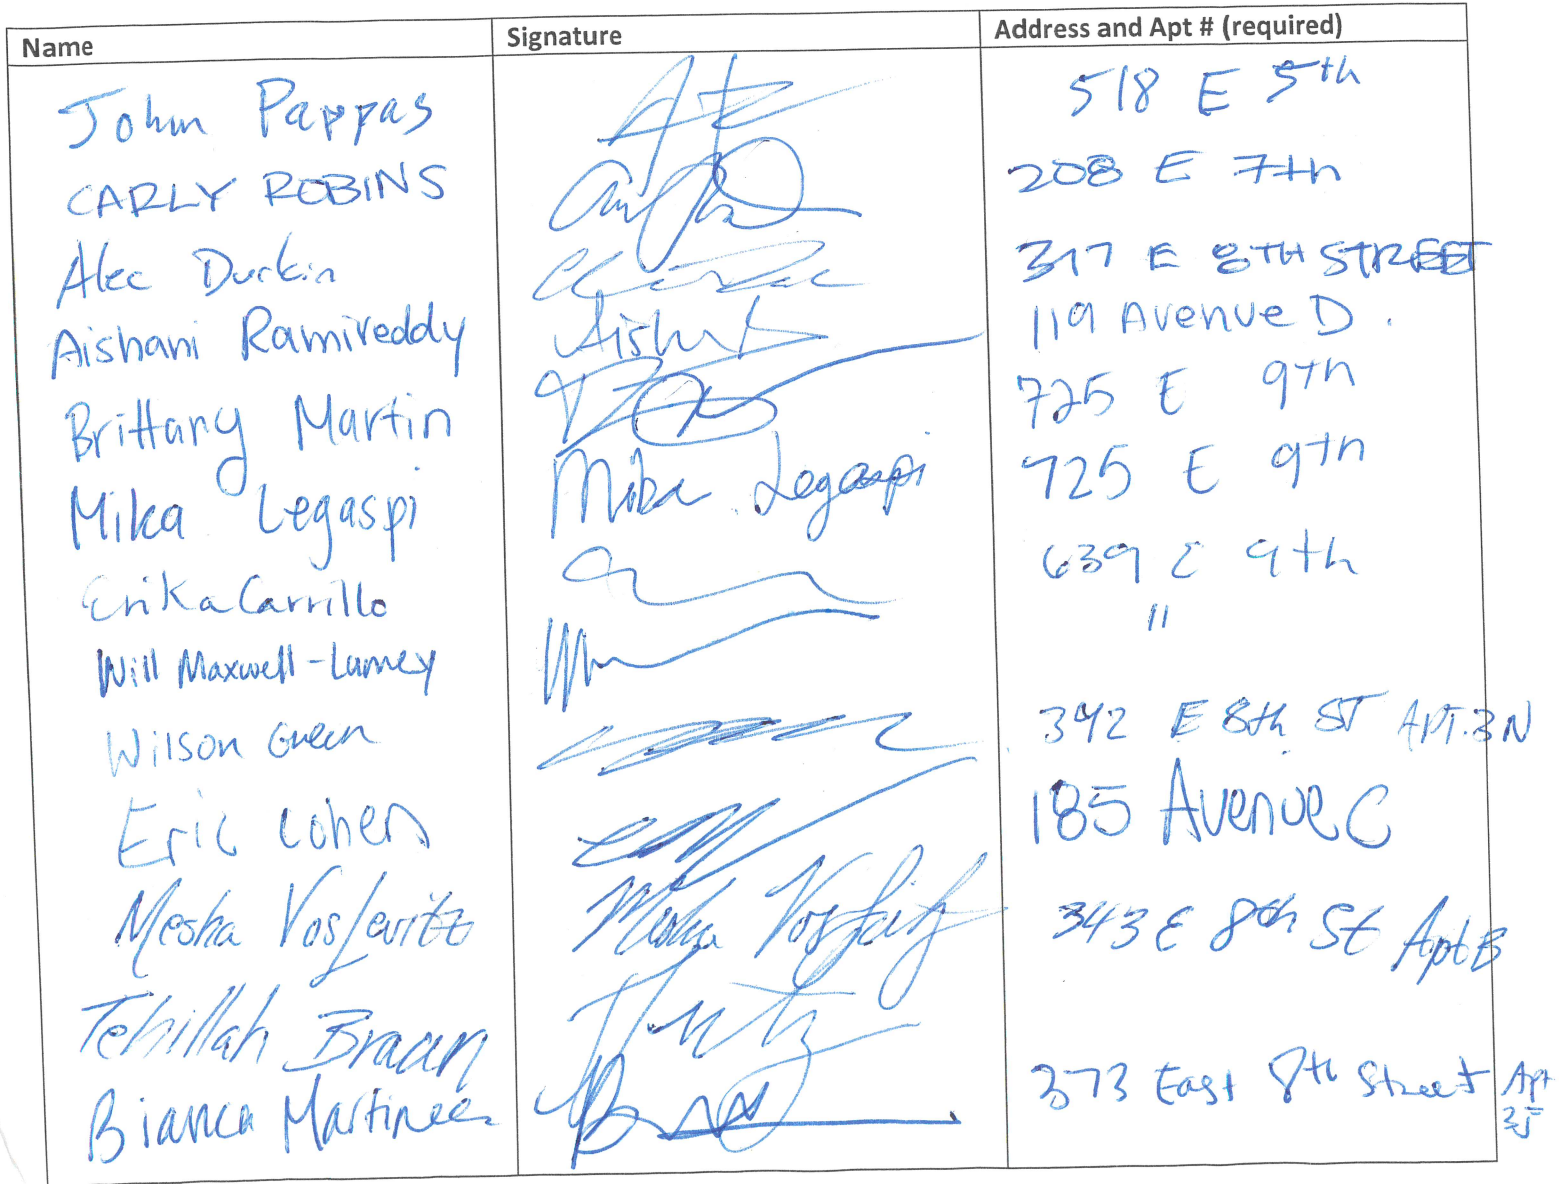 Name Signature Address and Apt # (required)
John Pappas 518 E 5th
CARLY ROBINS 208 E 7th
Alec Durkin 317 E 8TH STREET
Aishani Ramireddy 119 Avenue D.
Brittany Martin 725 E 9th
Mika Legaspi Mika Legaspi 725 E 9th
Erika Carrillo 639 E 9th
Will Maxwell-Lumey "
Wilson Green 342 E 8th ST APT. 3N
Eric Cohen 185 Avenue C
343 E 8th St Apt B
Tehillah Braun
Bianca Martinez 373 East 8th Street Apt